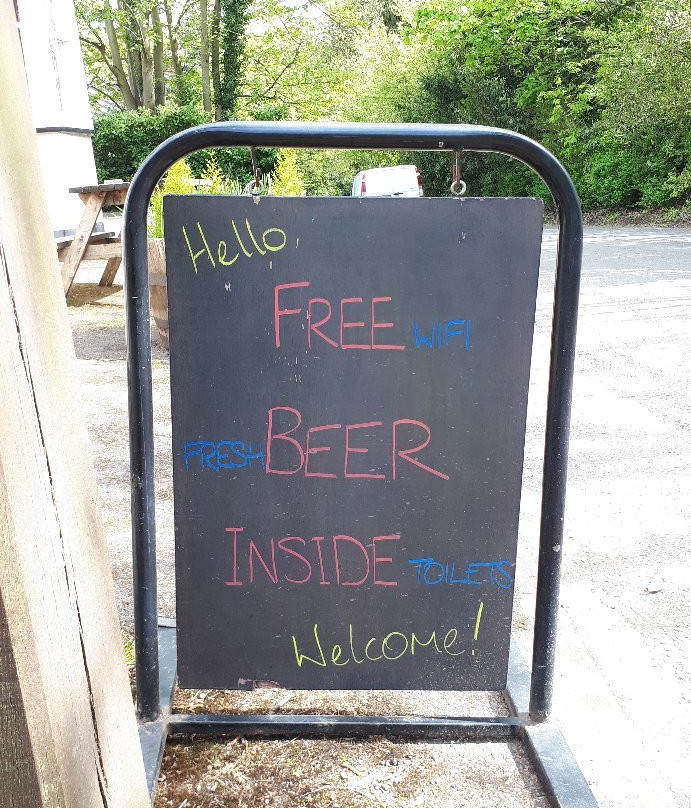 Hello,
FREE WIFI
FRESH BEER
INSIDE TOILETS
Welcome!